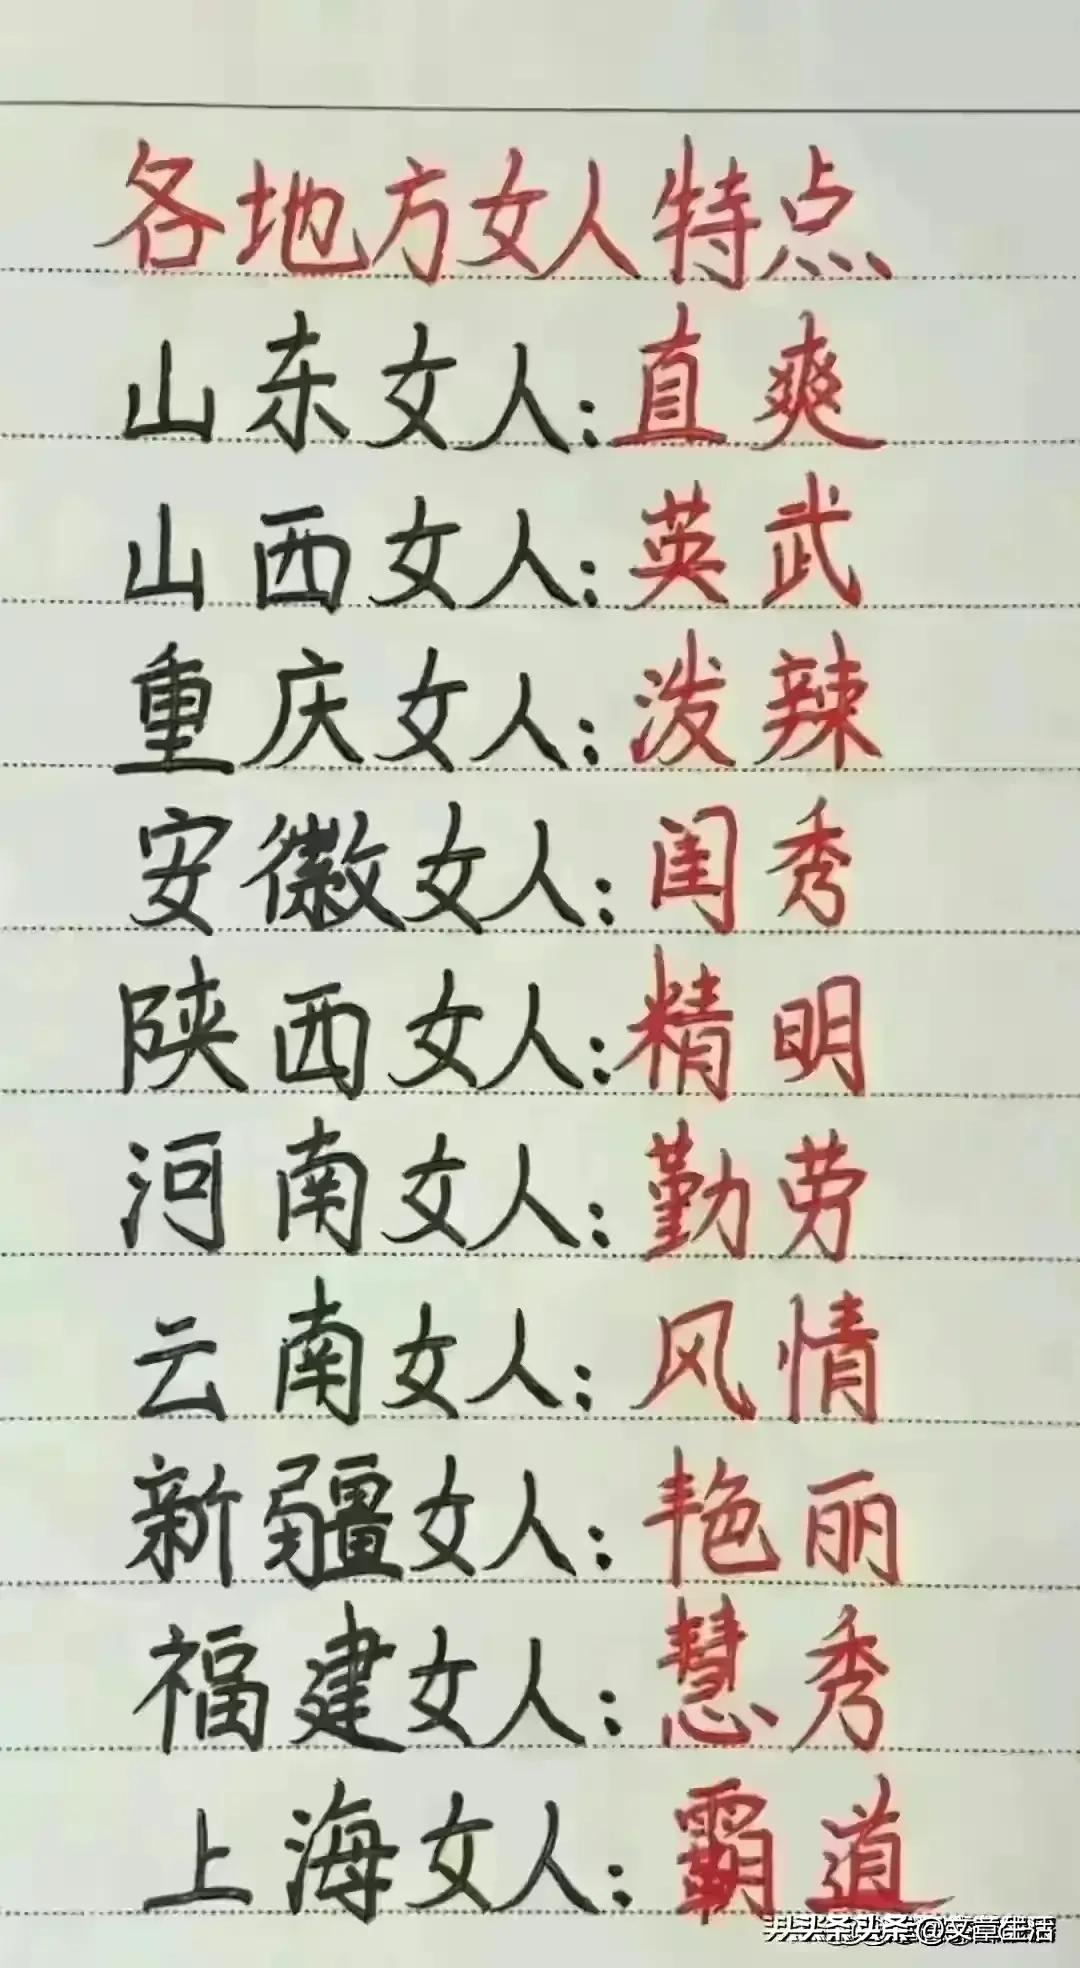 各地方女人特点
山东女人:直爽
山西女人:英武
重庆女人:泼辣
安徽女人:闺秀
陕西女人:精明
河南女人:勤劳
云南女人:风情
新疆女人:艳丽
福建女人:慧秀
上海女人:霸道
头条@文章生活